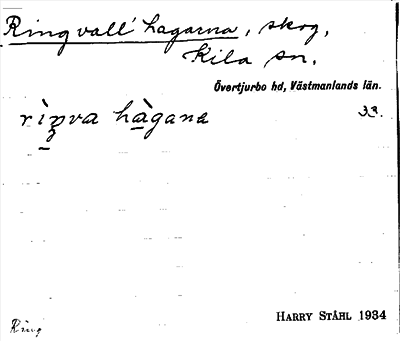 Ringvall'hagarna, skog,
Kila sn.
Övertjurbo hd, Västmanlands län.
rìŋva hàgana 33.
HARRY STÅHL 1934
Ring